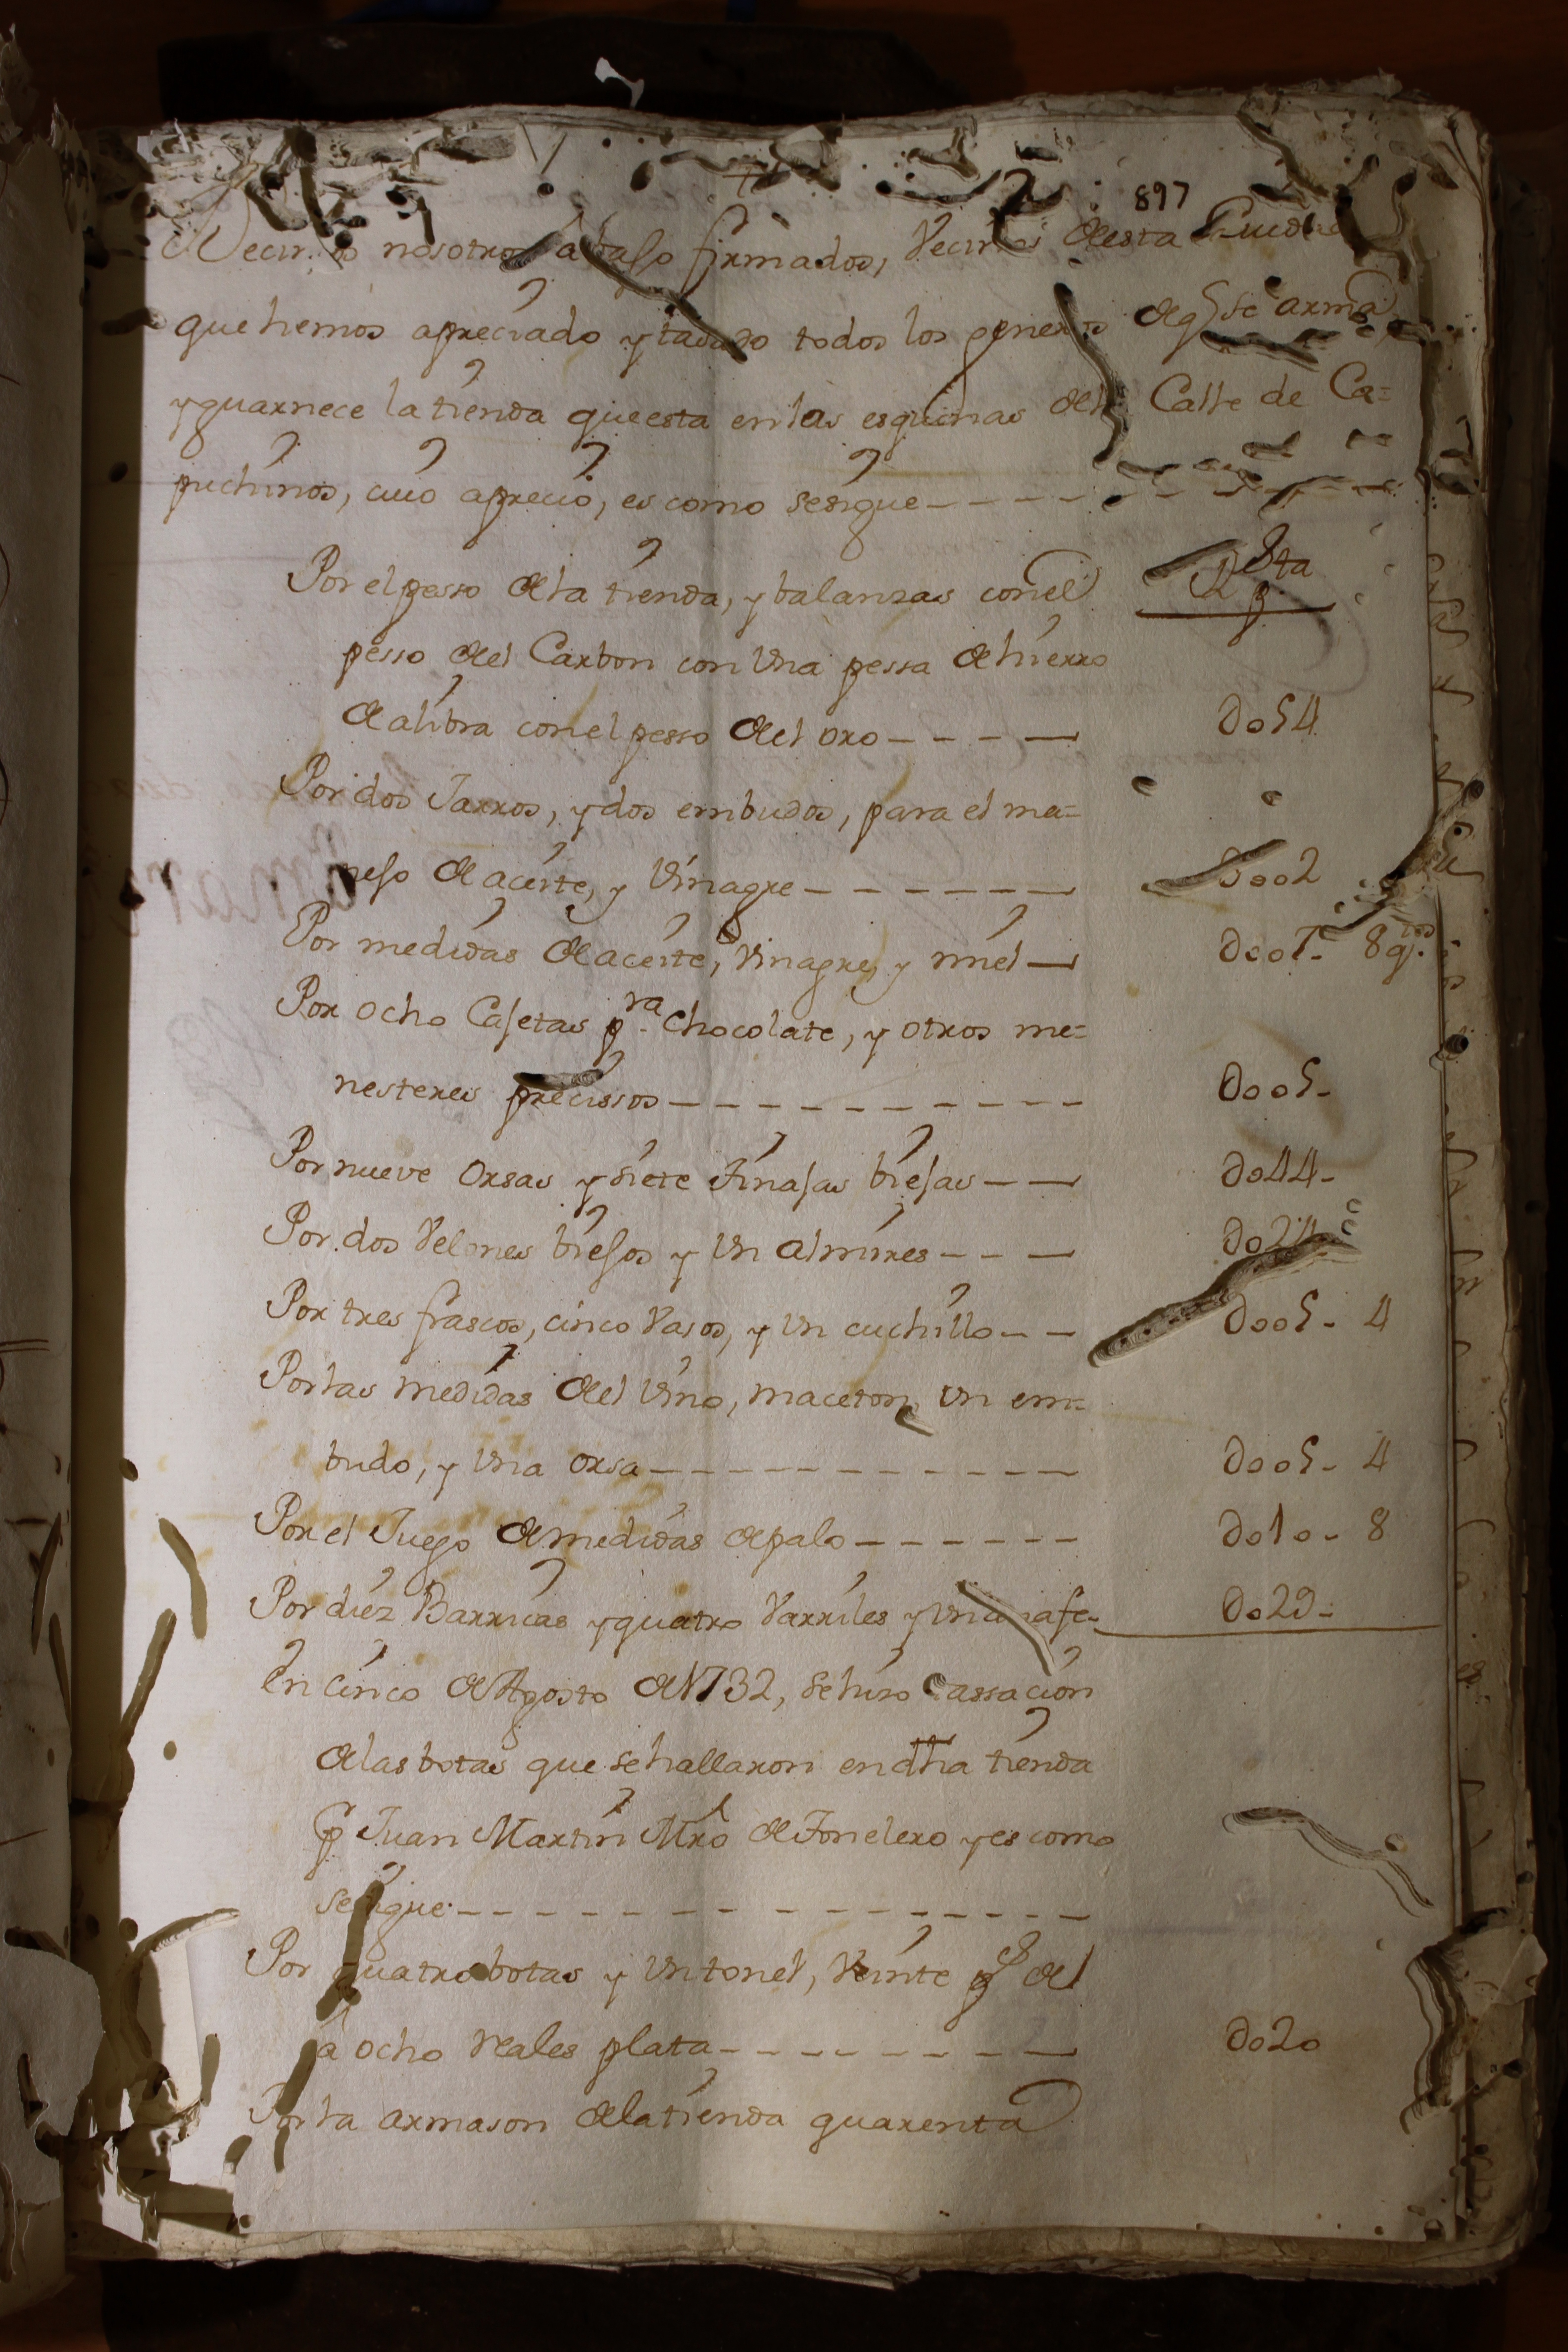 897
Decimos nosotros abajo firmados, Vecinos desta Ciudad
que hemos apreciado y tasado todos los generos de q se arma
y guarnece la tienda que esta en las esquinas de la Calle de Ca=
puchinos, cuio aprecio, es como se sigue
Rs pta
Por el pesso de la tienda, y balanzas con el
pesso del Carbon con Una pessa de hierro
de a libra con el pesso del oro 054
Por dos Jarros, y dos embudos, para el ma=
nejo de aceite, y Vinagre 0002
Por medidas de aceite, Vinagre, y miel 0007- 8 qtos
Por ocho Cajetas pra chocolate, y otros me=
nesteres precissos 0005-
Por nueve orsas y siete tinajas biejas 0044-
Por dos Velones biejos y Un almires 0024-
Por tres frascos, cinco Vasos, y Un cuchillo 0005- 4
Por las medidas del Vino, maceton, Un em=
budo, y Una orsa 0005- 4
Por el Juego de medidas de palo 0010- 8
Por diez Barricas y quatro Varriles y Una 0029-
En cinco de Agosto de 1732, se hiso tassacion
de las botas que se hallaron en dha tienda
p Juan Martin Mro de Tonelero y es como
se sigue
Por quatro botas y Un tonel, Veinte ps de
â ocho reales plata 0020
Por la armason de la tienda quarenta